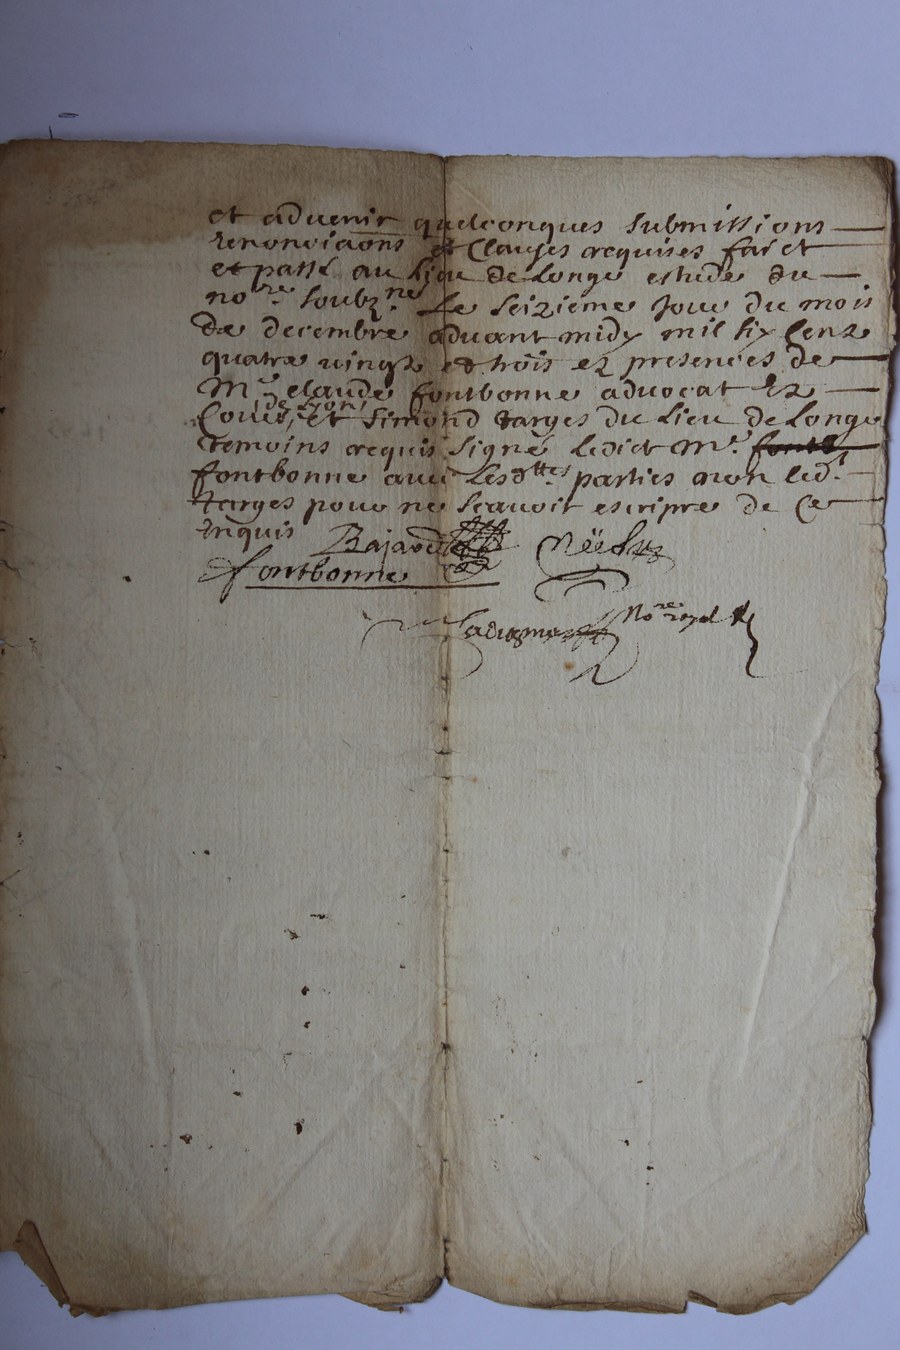 et advenir quelconques submissions
renonciaons et clauses requises faict
et passé au lieu de Longe estude du
no.re soubz.ne Le seizieme Jour du mois
de decembre advant midy mil six centz
quatre vingtz et trois ez presences de
M.e claude fontbonne advocat ez
Cours de Lyon, et Simond targes du Lieu de Longe
temoins requis signé ledict M.e fontb
fontbonne avec Lesd.ttes parties non led.t
targes pour ne scavoir escripre de ce
enquis Bajard
fontbonne
No.re royal